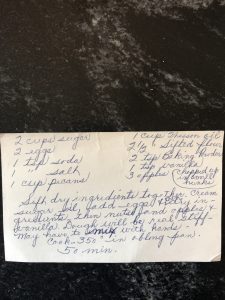 2 cups sugar
2 eggs
1 tsp soda
1 " salt
1 cup pecans
1 cup Wesson oil
2 1/2 " Sifted flour
2 tsp Baking Powder
1 tsp vanilla
3 apples (Chopped up
in small
chunks
Sift dry ingredients together. Cream
sugar, oil, add eggs & dry in-
gredients, then nuts and apples &
vanilla. Dough will be real stiff-
May have to mix with hands -
Cook 350° in oblong pan.
50 min.